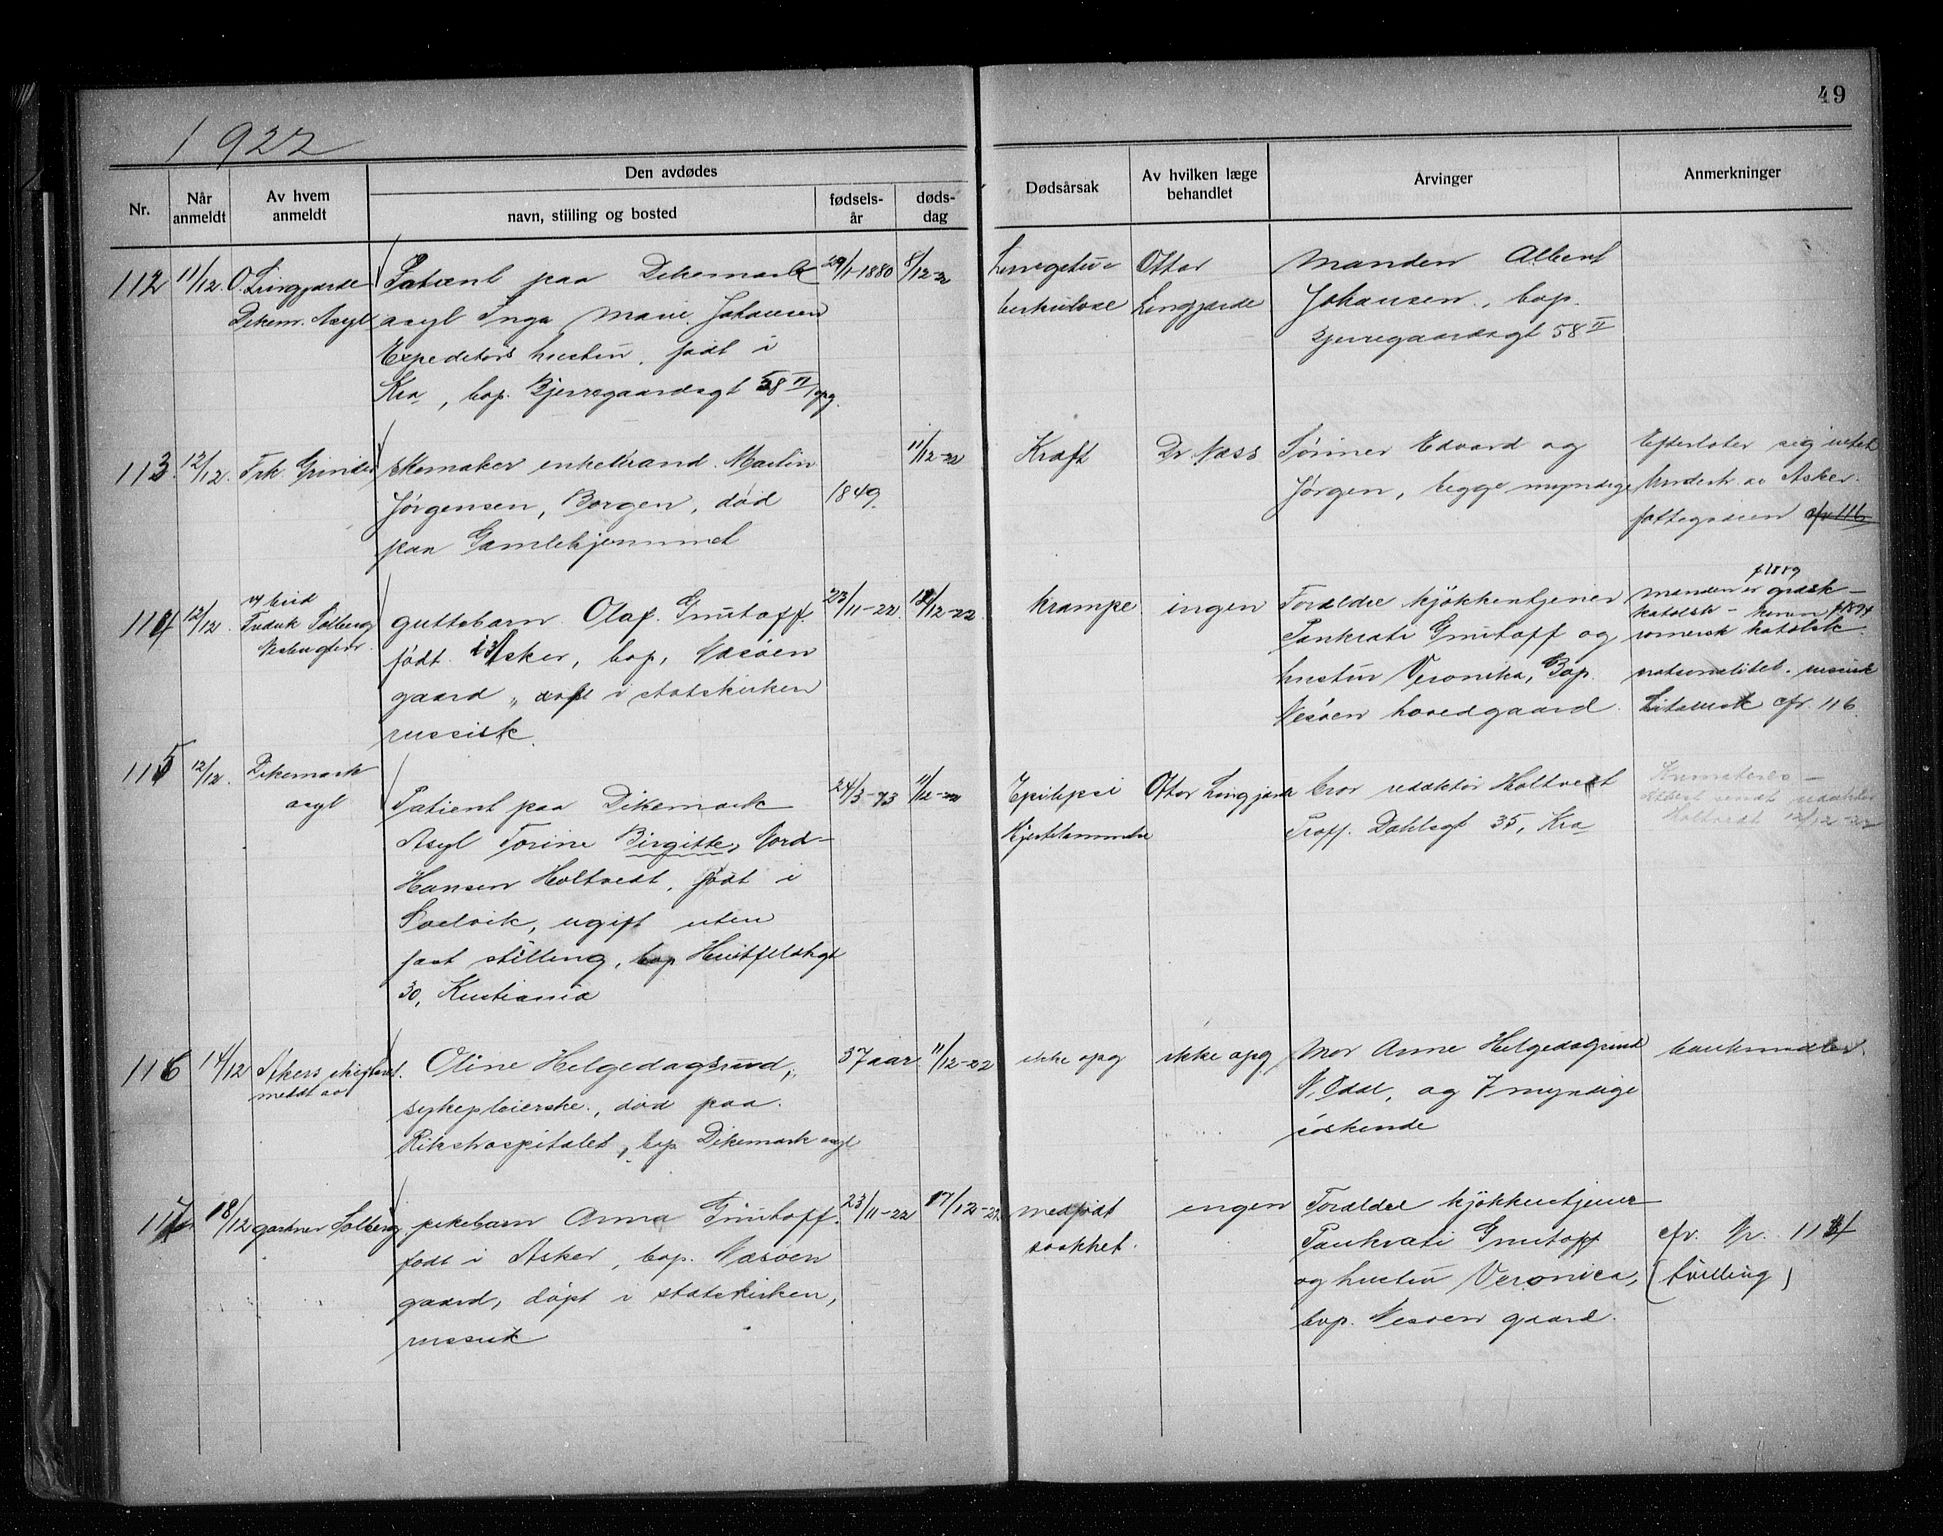 49
1922
Nr.
Når anmeldt
Av hvem anmeldt
Den avdødes
navn, stiiling og bosted
fødsels-år
døds-dag
Dødsårsak
Av hvilken læge behandlet
Arvinger
Anmerkninger
112 11/12 O. Lingjærde
Dikem. Asyl
Patient paa Dikemark
asyl Inga Marie Johansen
Expeditørs hustru, født i
Kra, bop. Bjerregaardsgt 58 II opg.
29/1-1880 8/12-22
Lungetu-
berkulose
Ottar
Lingjærde
Manden Albert
Johansen, bop.
Bjerregaardsgt 58 II
113 12/12 Frk. Grinder
Skomaker enkemand Martin
Jørgensen, Borgen, død
paa Gamlehjemmet
1849
11/12-22
Kræft
Dr. Næss
Sønner Edvard og
Jørgen, begge myndige
Efterlater sig intet
Underst. av Asker
fattigvæsen cfr 116
114 12/12 v/ bud
Fredrik Solberg
guttebarn Olaf Gnutoff
født i Asker, bop. Næsøen
gaard, døpt i statskirken
russisk
23/11-22 12/12-22
krampe
ingen
Forældre kjøkkentjener
Pankrati Gnutoff og
hustru Veronika, Bop.
Nesøen hovedgaard
f 1889
manden er græsk-
katolsk - konen f 1894
romersk katolsk
nationalitet russisk
Litauisk cfr. 116
115 12/12 Dikemark
asyl
Patient paa Dikemark
Asyl Torine Birgitte Nord-
Hansen Holtvedt, født i
Svelvik, ugift uten
fast stilling, bop Huitfeldtsgt
30, Kristiania
24/3-73 11/12-22
Epilepsi
Hjertelammelse
Ottar Lingjærde
bror redaktør Holtvedt
Proff. Dahlsgt 35, Kra
sendt redaktør
Holtvedt 12/12-22
116 14/12 Akers skifteret
meldt av
Oline Helgedagsrud,
sykepleierske, død paa
Rikshospitalet, bop. Dikemark asyl
37 aar 11/12-22
ikke opg
ikke opg
Mor Anne Helgedagsrud
N. Odal, og 7 myndige
søskende
bankmidler
117 18/12 gartner Solberg
pikebarn Anna Gnutoff
født i Asker, bop. Næsøen
gaard, døpt i statskirken,
russisk
23/11-22 17/12-22
medfødt
svakhet
ingen
Forældre kjøkkentjener
Pankrati Gnutoff
og hustru Veronica,
bop. Nesøen gaard
cfr. Nr. 114
(tvilling)